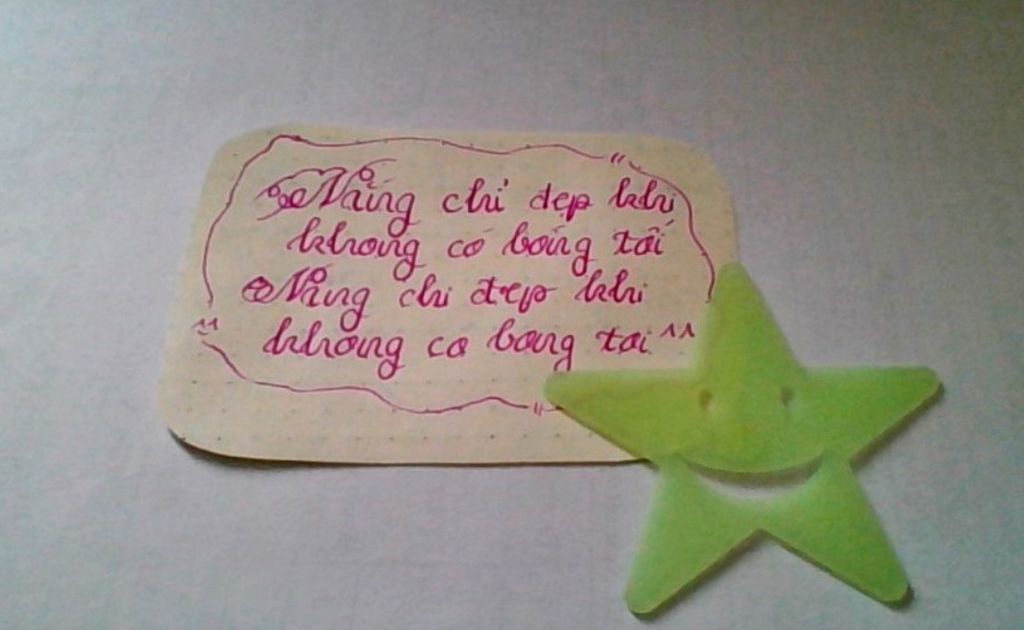 Nắng chỉ đẹp khi
không có bóng tối
Nắng chi đẹp khi
khong co bong toi ^^